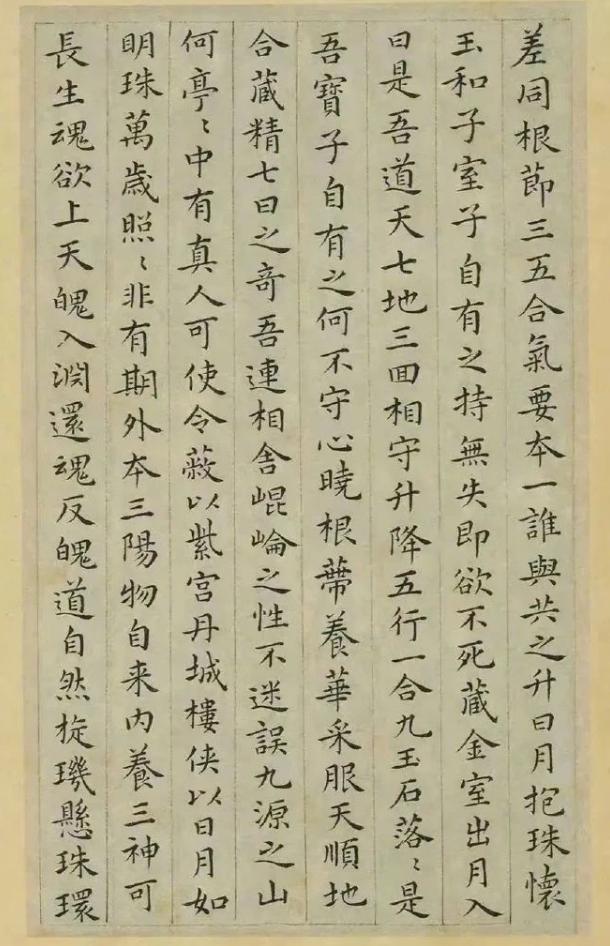 差同根節三五合氣要本一誰與共之升日月抱珠懷
玉和子室子自有之持無失即欲不死藏金室出月入
日是吾道天七地三回相守升降五行一合九玉石落〻是
吾寶子自有之何不守心曉根蔕養華采服天順地
合藏精七日之奇吾連相舍崐崘之性不迷誤九源之山
何亭〻中有真人可使令蔽以紫宫丹城樓俠以日月如
明珠萬歲照〻非有期外本三陽物自来内養三神可
長生魂欲上天魄入淵還魂反魄道自然旋璣懸珠環